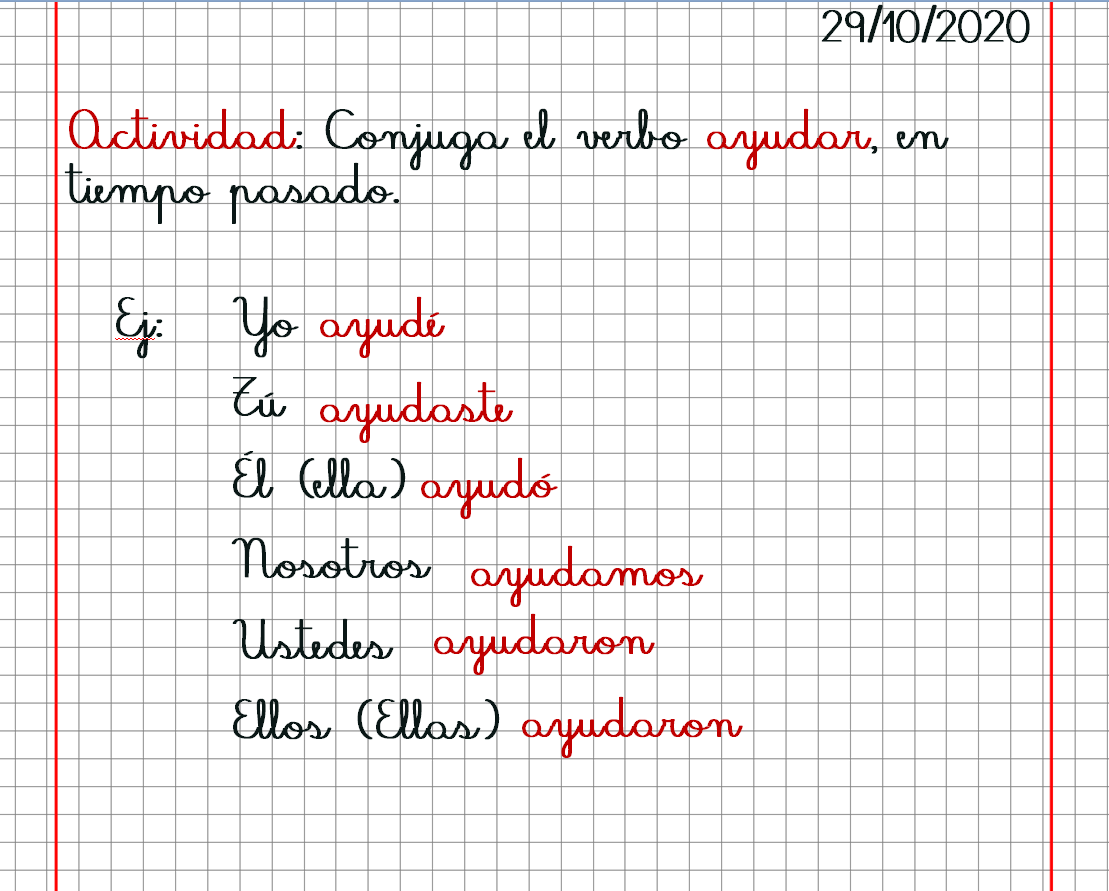 29/10/2020
Actividad: Conjuga el verbo ayudar, en
tiempo pasado.
Ej: Yo ayudé
Tú ayudaste
Él (ella) ayudó
Nosotros ayudamos
Ustedes ayudaron
Ellos (Ellas) ayudaron